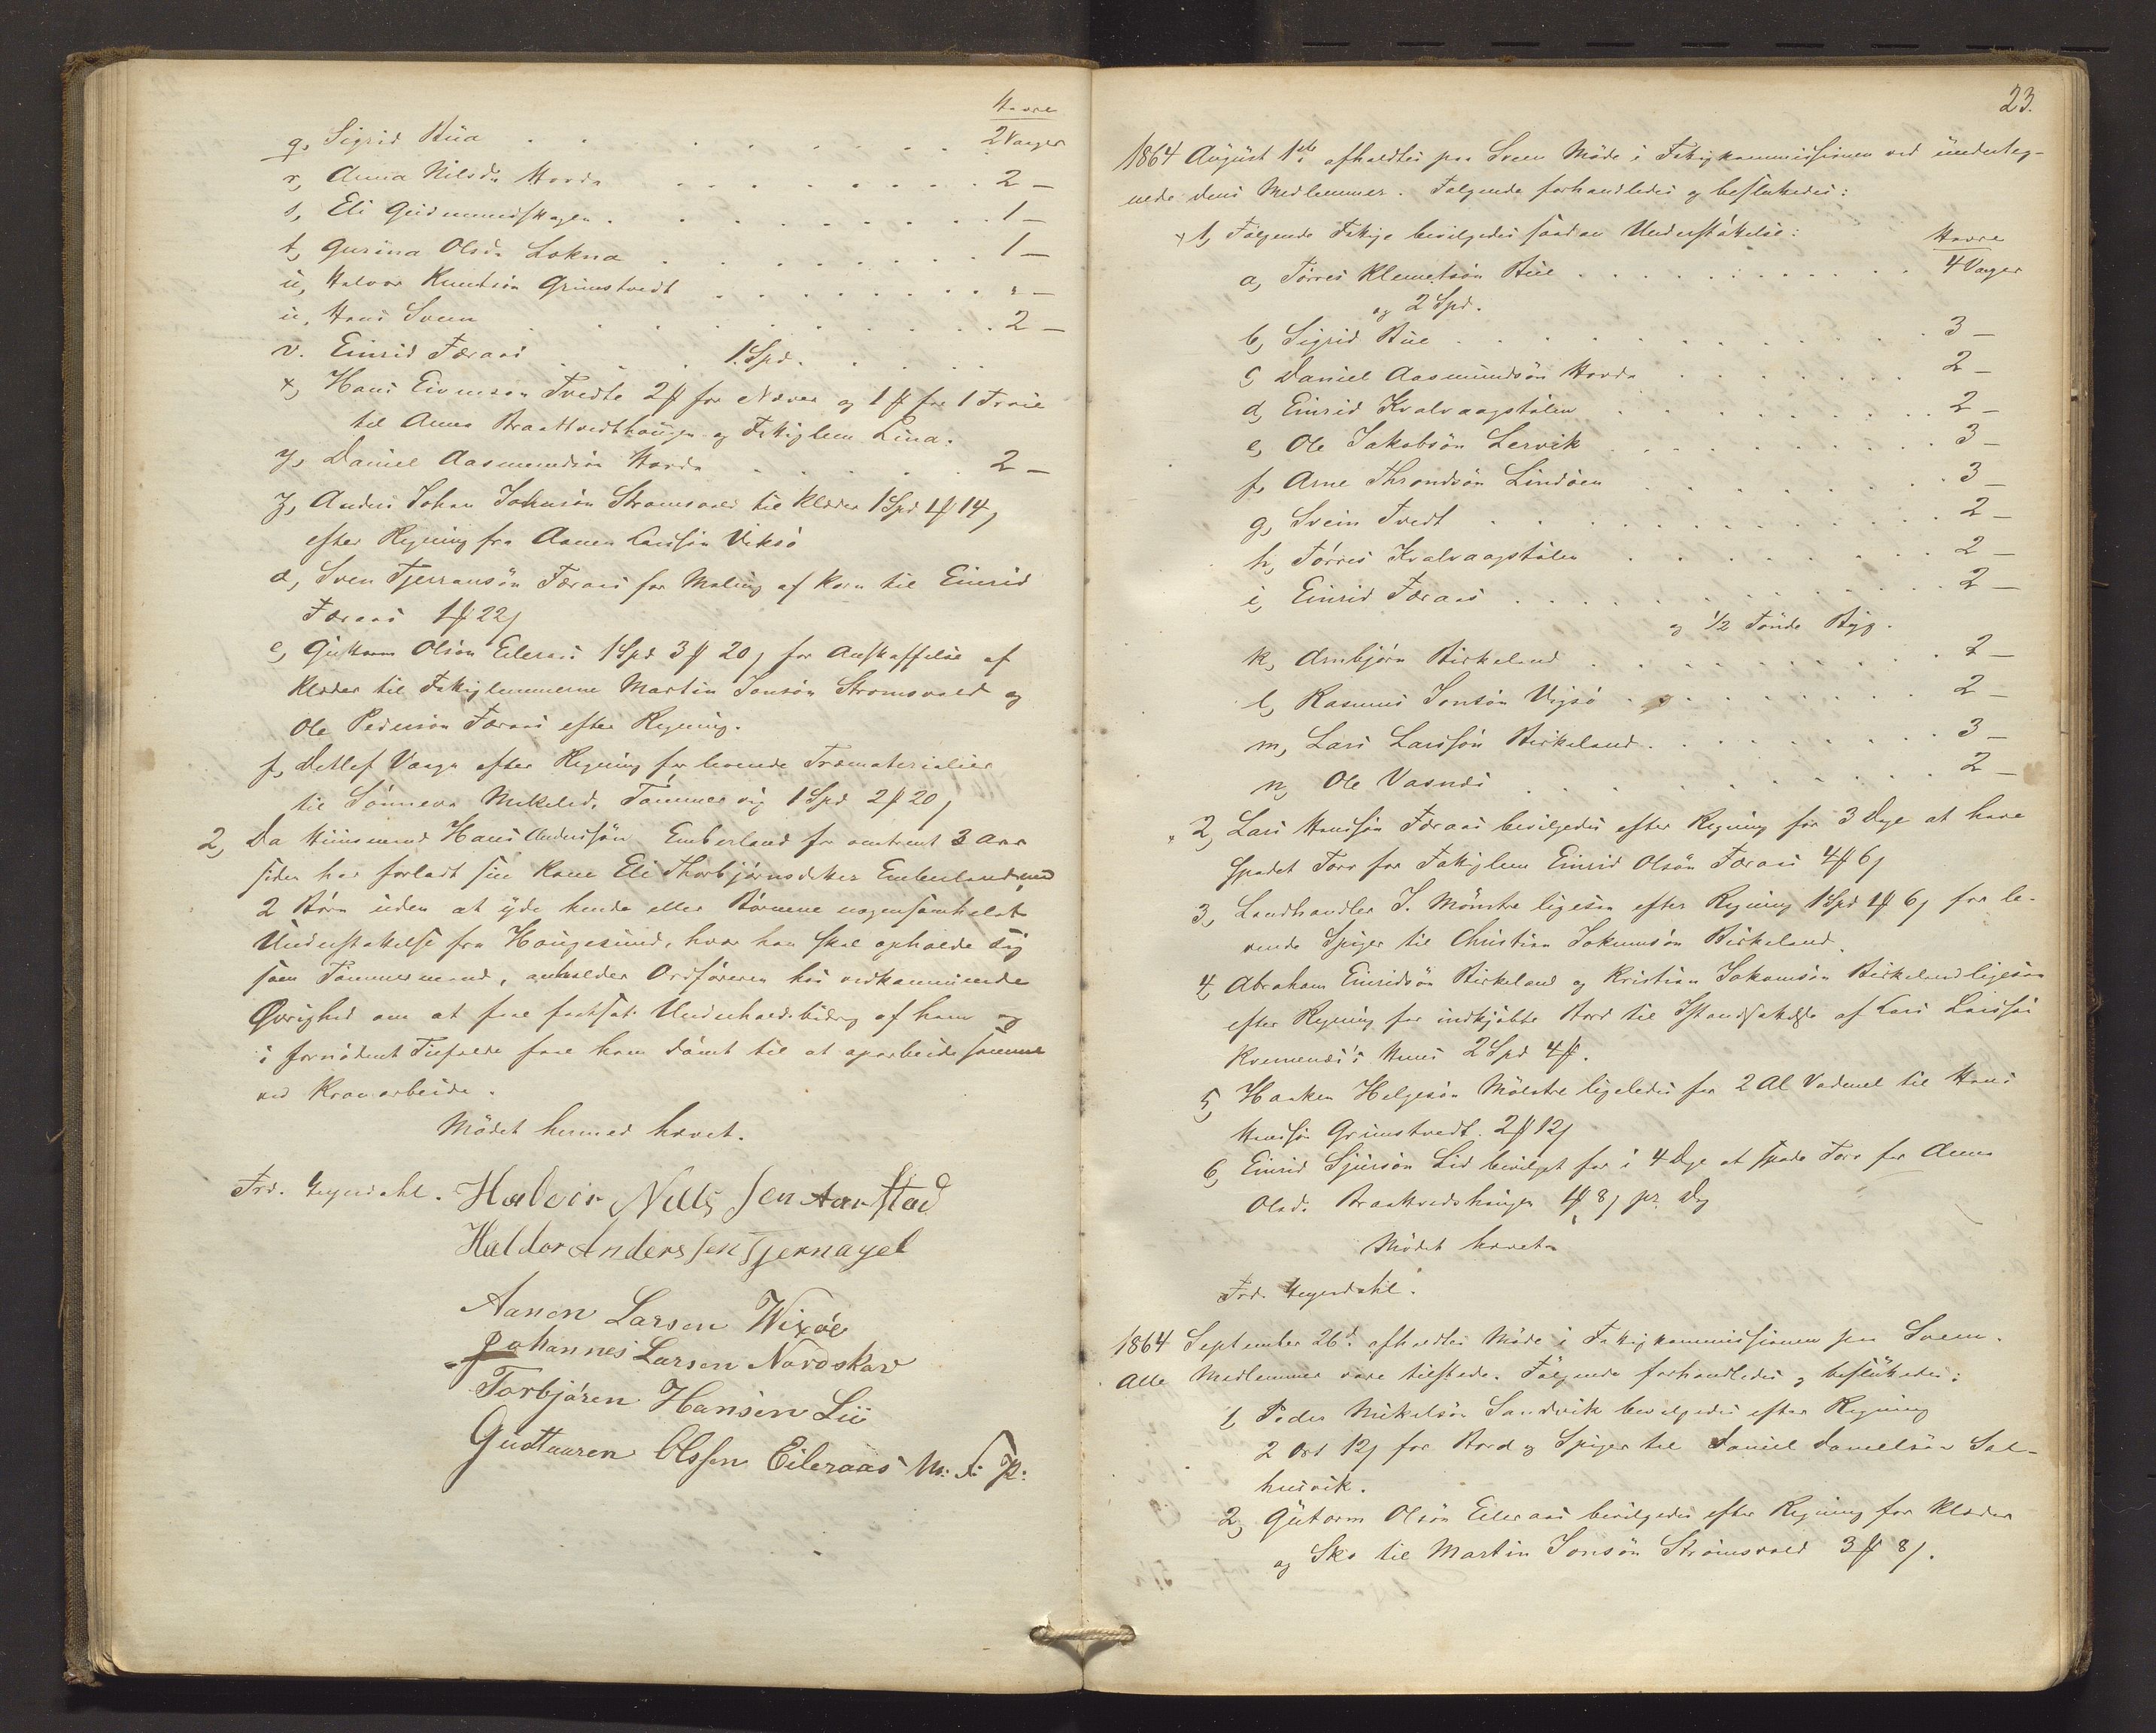 Havre
q, Sigrid Bua . . . . . . . . 2 Vaager
r, Anna Nilsdr Hovda . . . . . . . 2 —
s, Eli Gudmundshagen . . . . . . . 1 —
t, Gurina Olsdr Lokna . . . . . . . 1 —
u, Halvor Knudsön Grimstvedt . . . . . . . " —
ü, Hans Sveen . . . . . . . 2 —
v. Einrid Færaas . . . 1 Spd. . . . .
x, Hans Eivinson Tvedte 2 # for Næver og 1 # for 1 Troie
til Anna Braattvedthaugen og Fattiglem Lina.
y, Daniel Aasmundsön Hovda . . . . . 2 —
z, Anders Johan Johnsön Stromsvold til Klæder 1 Spd 1 # 14 ş
efter Regning fra Aanen Larssön Viksö
d, Sven Tjerransön Færaas for Maling af Korn til Einrid
Færaas 1 # 22 ş
e, Guttorm Olsön Eileraas 1 Spd 3 # 20 ş for Anskaffelse af
Klæder til Fattiglemmerne Martin Jonsön Stromsvold og
Ole Pedersön Færaas efter Regning.
f, Detlef Vaage efter Regning for leverede Træmaterialier
til Sönneva Mikelsd. Tömmervig 1 Spd 2 # 20 ş
2, Da Huusmand Hans Anderssön Emberland for omtrent 3 Aar
siden har forladt sin Kone Eli Thorbjörnsdatter Emberland med
2 Börn uden at yde hende eller Börnene nogensomhelst
Understøttelse fra Haugesund, hvor han skal opholde sig
som Tömmermand, anholder Ordföreren hos vedkommende
Øvrighed om at faae fastsat Underholdsbidrag af ham og
i fornödent Tilfælde faae ham dömt til at aparbeide samme
ved Kronarbeide.
Mödet hermed hævet.
Frd. Gyendahl. Halvor Nills sen Aarstad
Haldor Anderssen Tjernagel
Aanen Larsen Wixöe
Johannes Larsen Nordskov
Torbjören Hansen Lie
Gudtuuren Olssen Eileraas M: F: P:
23.
1864 August 1ste afholdtes paa Sveen Möde i Fattigkommissionen ved underteg-
nede dens Medlemmer. Følgende forhandledes og besluttedes:
1, Følgende Fattige bevilgedes saadan Understøttelse:
Havre
a, Törres Klemetsön Bue . . . . . . . 4 Vaager
og 2 Spd.
b, Sigrid Bue . . . . . . . 3 —
c, Daniel Aasmundsön Hovda . . . . . . 2 —
d, Einrid Kvalvaagstölen . . . . . . 2 —
e, Ole Jakobsön Lervik . . . . . . 3 —
f, Arne Throndsön Lindöen . . . . . . 3 —
g, Svein Tvedt . . . . . . . 2 —
h, Törres Kvalvaagstölen . . . . . . 2 —
i, Einrid Færaas . . . . . . . 2 —
og 1/2 Tönde Byg.
k, Arnbjörn Birkeland . . . . . . . 2 —
l, Rasmus Jonsön Vigsö . . . . . . . 2 —
m, Lars Larssön Birkeland . . . . . . . 3 —
n, Ole Vasnæs . . . . . . . 2 —
2, Lars Hanssön Færaas bevilgedes efter Regning for 3 Dage at have
spadet Torv for Fattiglem Einrid Olsön Færaas 4 # 6 ş
3, Landhandler J. Mönstre ligesaa efter Regning 1 Spd 1 # 6 ş for le-
verede Spiger til Christian Jokumsön Birkeland.
4, Abraham Einridsön Birkeland og Kristian Jokomsön Birkeland ligesaa
efter Regning for indkjöbte Bord til Istandsættelse af Lars Larssön
Kvernenæs's Huus 2 Spd 4 #.
5, Haaken Helgesön Mölstre ligeledes for 2 Al Vadmel til Hans
Hanssön Grimstvedt. 2 # 12 ş
6, Einrid Sjursön Lid bevilget for i 4 Dage at spade Torv for Anna
Olsd. Braatvedthaugen 1 # 8 ş pr. Dag
Mödet hævet.
Frd. Gyendahl.
1864 September 26d. afholdtes Möde i Fattigkommissionen paa Sveen.
Alle Medlemmer vare tilstede. Følgende forhandledes og besluttedes:
1, Peder Mikelsön Sandvik bevilgedes efter Regning
2 Ort 12 ş for Bord og Spiger til Daniel Danielsön Sal-
husvik.
2, Gutorm Olsön Eileraas bevilgedes efter Regning for Klæder
og Sko til Martin Jonsön Strömsvold 3 # 8 ş.